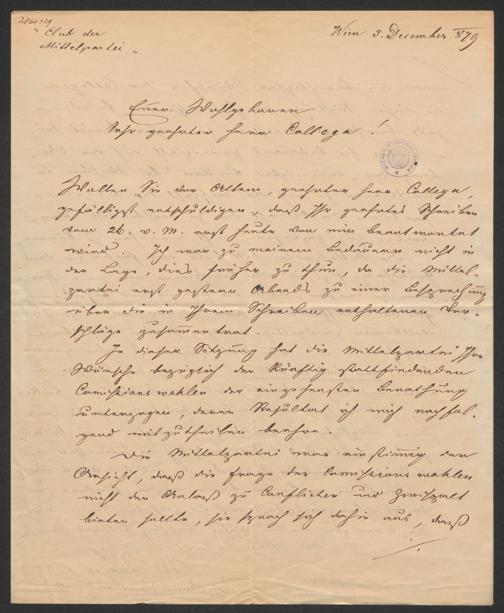 "Club der
Mittelpartei"
Wien 3. December 879
Euer Wohlgeboren
Sehr geehrter Herr Collega!
Wollen Sie vor Allem, geehrter Herr Collega,
gefälligst entschuldigen, daß Ihr geehrtes Schreiben
vom 26. v. M. erst heute von mir beantwortet
wird. Ich war zu meinem Bedauern nicht in
der Lage, dies früher zu thun, da die Mittel-
partei erst gestern Abends zu einer Besprechung
über die in Ihrem Schreiben enthaltenen Vor-
schläge zusammentrat.
In dieser Sitzung hat die Mittelpartei Ihre
Wünsche bezüglich der künftig stattfindenden
Comissionswahlen der eingehensten Berathung
unterzogen, deren Resultat ich mich nachfol-
gend mitzutheilen beehre.
Die Mittelpartei war einstimmig der
Ansicht, daß die Frage der Comissionswahlen
nicht den Anlaß zu Conflicten und Zwiespalt
bieten sollte, sie sprach sich dahin aus, daß